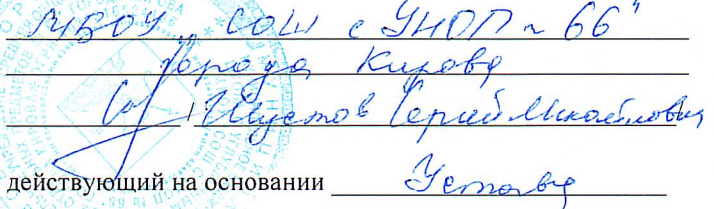 МБОУ СОШ с УИОП № 66"
города Кирова
Шустов Сергей Михайлович
действующий на основании Устава